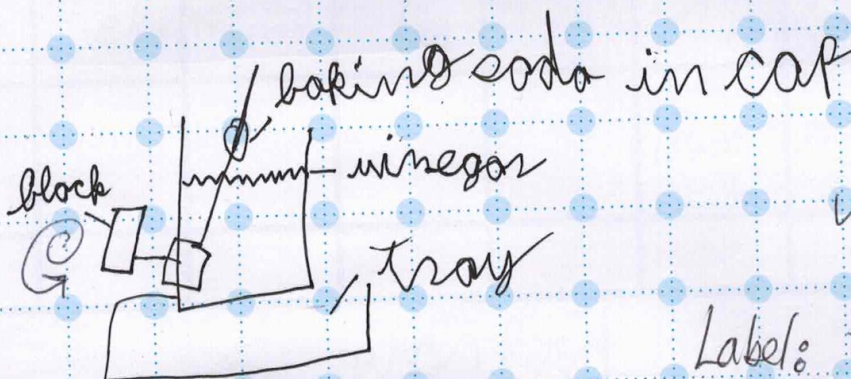 baking soda in cap
vinegar
block
tray
Label: